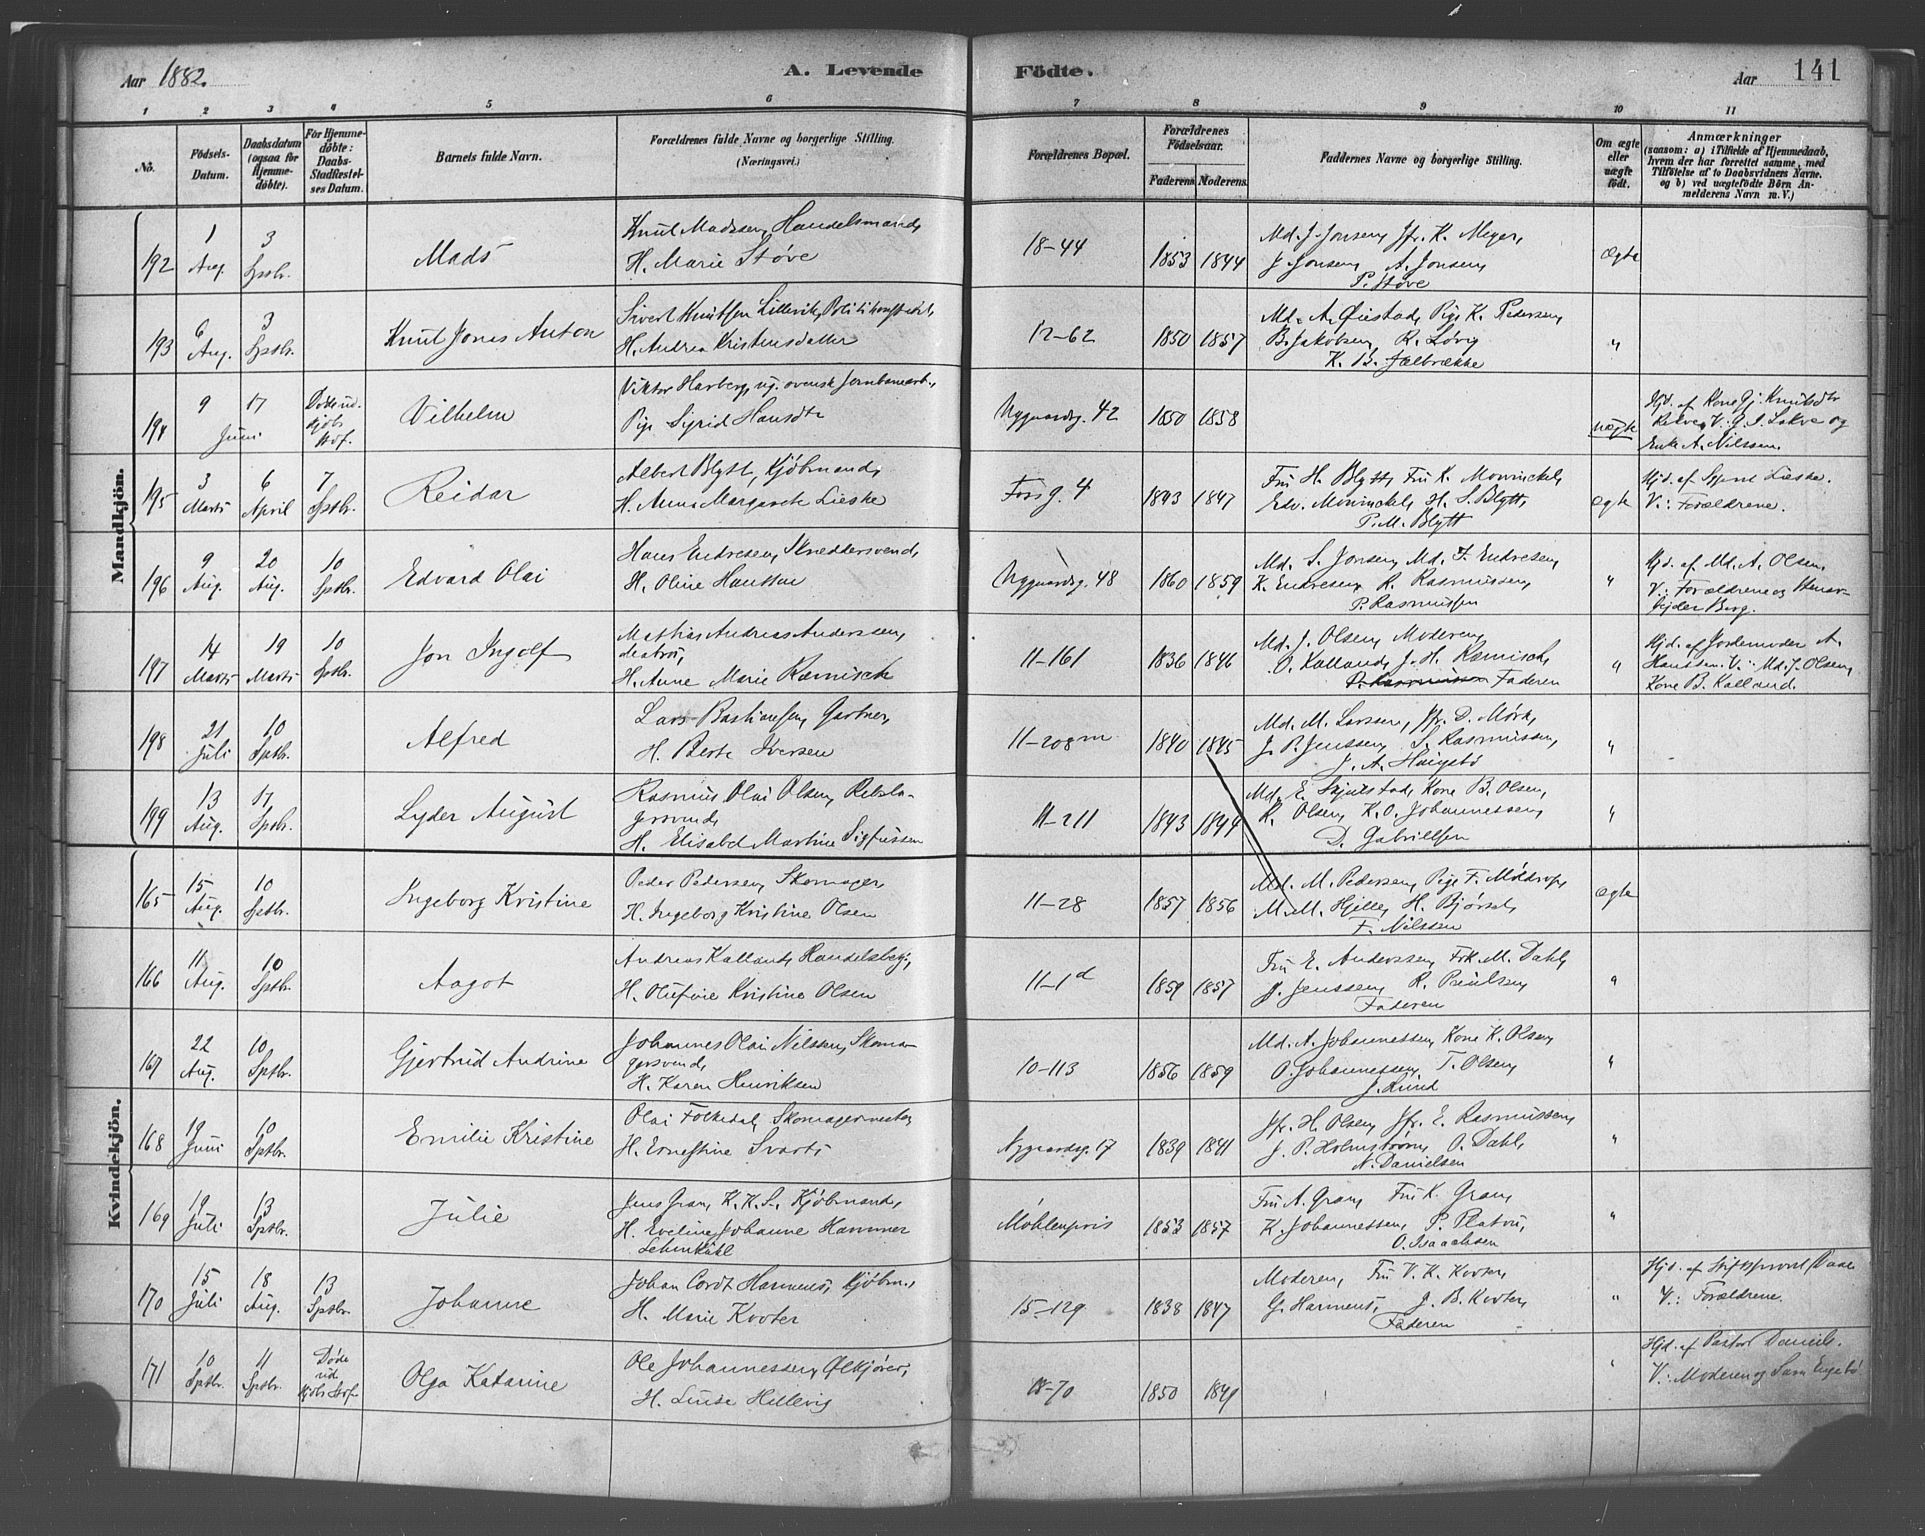 Aar 1882. A. Levende Födte. Aar 141
1 2 3 4 5 6 7 8 9 10 11
No.
Födsels-
Datum.
Daabsdatum
(ogsaa for
Hjemme-
döbte).
For Hjemme-
döbte:
Daabs-
Stadfæstel-
ses Datum.
Barnets fulde Navn.
Forældrenes fulde Navne og borgerlige Stilling.
(Næringsvei.)
Forældrenes Bopæl.
Forældrenes
Födselsaar.
Faderens. Moderens.
Faddernes Navne og borgerlige Stilling.
Om ægte
eller
uægte
födt.
Anmærkninger
(saasom: a) i Tilfælde af Hjemmedaab,
hvem der har forrettet samme, med
Tilföielse af to Daabsvidners Navne.
og b) ved uægtefödte Börn An-
melderens Navn m. V.)
Mandkjön.
192 1 Aug. 3 Sptbr. Mads
Knut Madsen, Handelsmand,
H. Marie Støve
18-44 1853 1844
Md. J. Jonsen, Jfr. K. Meyer,
J. Jonsen, A. Jonsen,
P. Støve
Ægte
193 6 Aug. 3 Sptbr. Knut Jonas Anton
Sivert Knutsen Lillevik, Politikonstabel,
H. Andrea Kristensdatter
12-62 1850 1857
Md. A. Øiestad, Pige K. Pedersen,
B. Jakobsen, R. Løvig
K. B. Jælbrække
"
194 9 17 Juni Døde ud. Kjøbs Hof. Vilhelm
Viktor Harberg, ug. svensk Jernbanearb.,
Pige Sigrid Hansdtr
Nygaardsg. 42 1850 1858
uægte
Hjd. af Kone Gj. Knutsdtr
V. G. S. Sakve og
Enke A. Nilssen.
195 3 Marts 6 April 7 Sptbr. Reidar
Albert Blytt, Kjøbmand,
H. Anna Margarete Lieske
Fossg. 4 1843 1847
Fru H. Blytt, Fru K. Mowinckel,
Edv. Mowinckel, H. S. Blytt,
P. M. Blytt
ægte
Hjd. af Lieske.
V.: Forældrene.
196 9 Aug. 20 Aug. 10 Sptbr. Edvard Olai
Hans Endresen, Skræddersvend,
H. Oline Hanssen
Nygaardsg. 48 1860 1859
Md. S. Jonsen, Md. F. Endresen,
K. Endresen, R. Rasmussen,
P. Rasmussen
"
Hjd. af Md. A. Olsen.
V.: Forældrene og Stenar-
beider Berg.
197 14 Marts 19 Marts 10 Sptbr. Jon Ingolf
Mathias Andreas Andersen,
H. Anne Marie Ræmisch
11-161 1836 1846
Md. J. Olsen, Moderen,
O. Kalland, J. H. Ræmisch,
P. Rasmussen Faderen
"
Hjd. af Jordemoder A.
Hanssen. V.: Md. J. Olsen,
Kone B. Kalland.
198 21 Juli 10 Sptbr. Alfred
Lars Bastiansen, Gartner,
H. Berte Iversen
11-208 m 1840 1845
Md. M. Larsen, Jfr. D. Mørk,
J. B. Jenssen, S. Rasmussen,
J. A. Haugstø
"
199 13 Aug. 17 Sptbr. Lyder August
Rasmus Olai Olsen, Rebsla-
gersvend,
H. Elisabet Martine Sigfussen
11-211 1843 1844
Md. E. Skjulstad, Kone B. Olsen,
R. Olsen, K. O. Johannessen,
D. Gabrielsen
"
Kvindekjön.
165 15 Aug. 10 Sptbr. Ingeborg Kristine
Peder Pedersen, Skomager,
H. Ingeborg Kristine Olsen
11-28 1857 1856
Md. M. Pedersen, Pige F. Møldrop,
M. M. Hjelle, H. Bjørset,
F. Nilssen
ægte
166 11 Aug. 10 Sptbr. Aagot
Andreas Kalland, Handelsbetj.,
H. Olufine Kristine Olsen
11-1 d 1859 1857
Fru E. Anderssen, Frk. M. Dahl,
J. Jenssen, R. Paulsen,
Faderen
"
167 22 Aug. 10 Sptbr. Gjertrud Andrine
Johannes Olai Nilssen, Skoma-
gersvend,
H. Karen Henriksen
10-113 1856 1859
Md. A. Johannessen, Kone K. Olsen,
O. Johannessen, T. Olsen,
J. Lund
"
168 19 Juni 10 Sptbr. Emilie Kristine
Olai Folkedal, Skomagermester,
H. Ernestine Svarts
Nygaardsg. 17 1839 1841
Jfr. H. Olsen, Jfr. E. Rasmussen,
J. P. Holmstrøm, O. Dahl,
N. Danielsen
"
169 19 Juli 13 Sptbr. Julie
Jens Gran, K. K. S., Kjøbmand,
H. Eveline Johanne Hammer
Lehmkuhl
Møhlenpris 1853 1857
Fru A. Gran, Fru K. Gran,
K. Johannessen, P. Platou,
O. Isaachsen
"
170 15 Juli 18 Aug. 13 Sptbr. Johanne
Johan Cordt Harmens, Kjøbm.,
H. Marie Koster
15-129 1838 1847
Moderen, Fru V. K. Koster,
G. Harmens, J. B. Koster,
Faderen
"
Hjd. af Stiftsprovst Daae
V.: Forældrene.
171 10 Sptbr. 11 Sptbr. Døde ud Kjøbs Hof. Olga Katarine
Ole Johannessen, Ølkjører,
H. Luise Hillevig
-70 1850 1849
"
Hjd. af Pastor Daniels.
V.: Moderen og